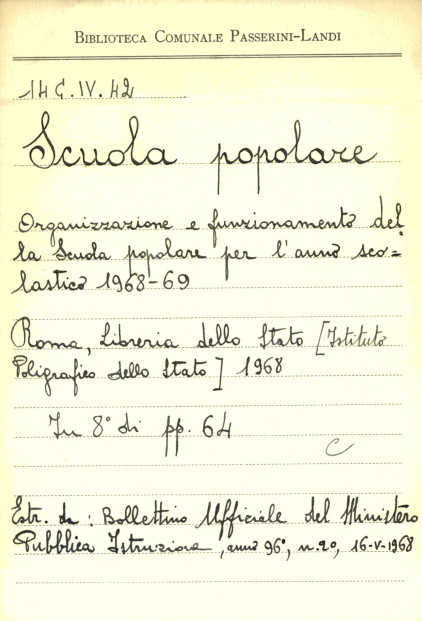 BIBLIOTECA COMUNALE PASSERINI-LANDI
14 G. IV. 42
Scuola popolare
Organizzazione e funzionamento del-
la Scuola popolare per l'anno sco=
lastico 1968-69
Roma, Libreria dello Stato [Istituto
Poligrafico dello Stato] 1968
In 8° di pp. 64
C
Estr. da: Bollettino Ufficiale del Ministero
Pubblica Istruzione, anno 96°, n. 20, 16-V-1968